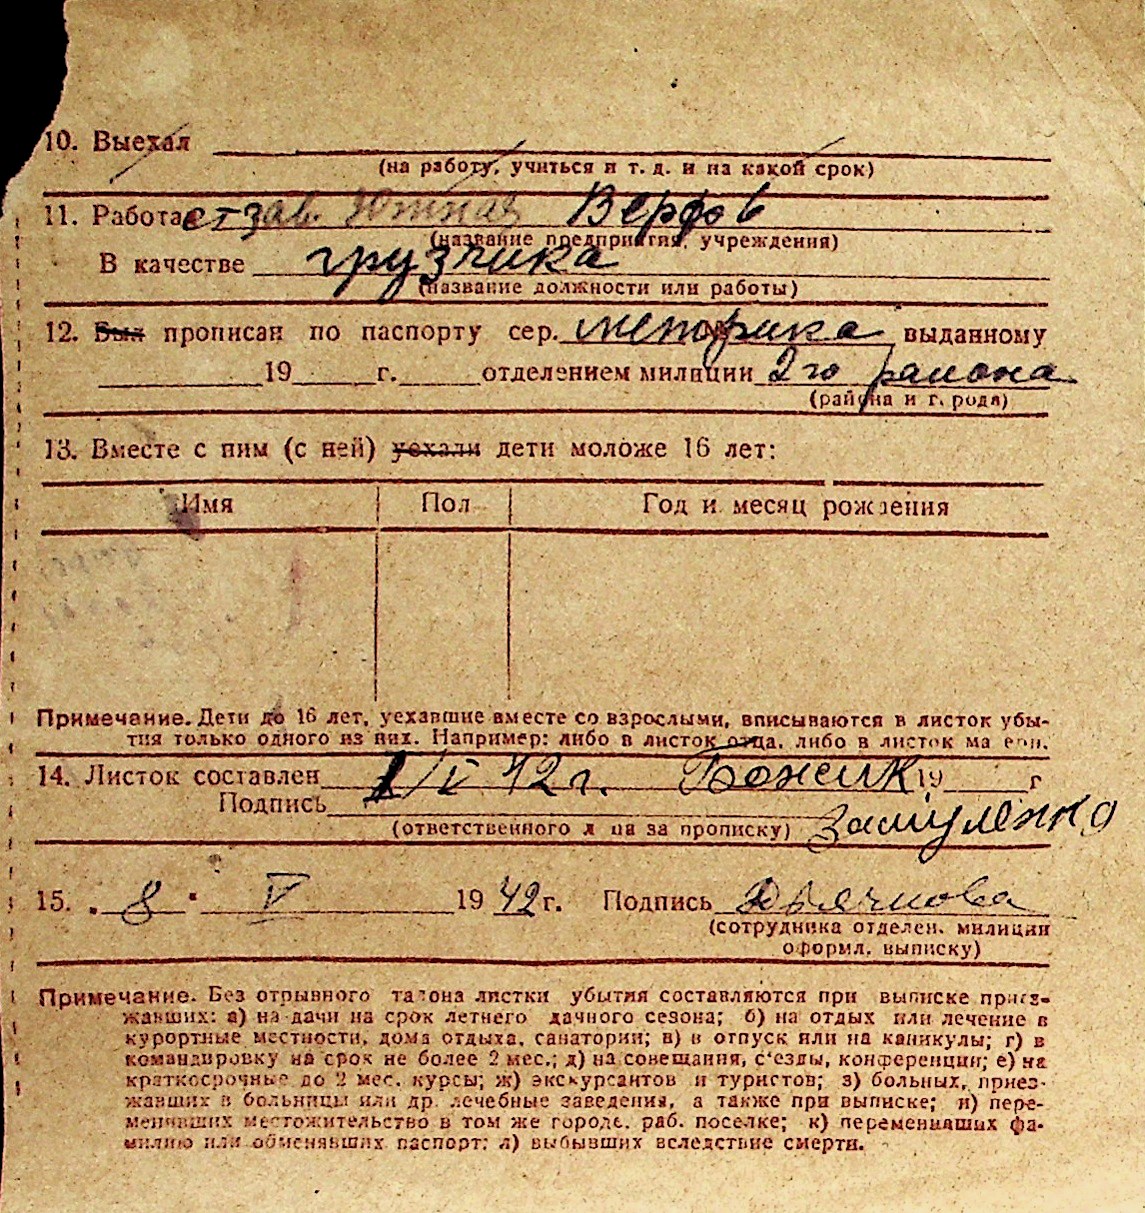 10. Выехал
(на работу, учиться и т. д. и на какой срок)
11. Работает зав. Южная Верфь
(название предприятия, учреждения)
В качестве грузчика
(название должности или работы)
12. Был прописан по паспорту сер. метрика выданному
19 г. отделением милиции 2го района
(района и г. рода)
13. Вместе с ним (с ней) уехали дети моложе 16 лет:
Имя Пол Год и месяц рождения
Примечание. Дети до 16 лет, уехавшие вместе со взрослыми, вписываются в листок убы-
тия только одного из них. Например: либо в листок отца, либо в листок ма ери.
14. Листок составлен 1/V 42г. 19 г
Подпись
(ответственного л ца за прописку)
15. 8 V 1942 г. Подпись Дьячкова
(сотрудника отделен. милиции
оформл. выписку)
Примечание. Без отрывного талона листки убытия составляются при выписке приез-
жавших: а) на дачи на срок летнего дачного сезона; б) на отдых или лечение в
курортные местности, дома отдыха, санатории; в) в отпуск или на каникулы; г) в
командировку на срок не более 2 мес.; д) на совещания, с'езды, конференции; е) на
краткосрочные до 2 мес. курсы; ж) экскурсантов и туристов; з) больных, приез-
жавших в больницы или др. лечебные заведения, а также при выписке; и) пере-
менивших местожительство в том же городе, раб. поселке; к) переменивших фа-
милию или обменявших паспорт; л) выбывших вследствие смерти.